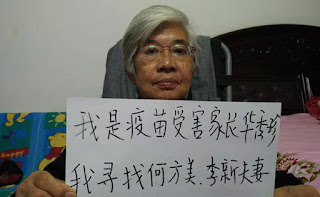 我是疫苗受害家长华秀珍
我寻找何方美.李新夫妻
happy